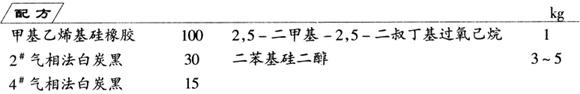 配方
kg
甲基乙烯基硅橡胶 100 2,5-二甲基-2,5-二叔丁基过氧己烷 1
2# 气相法白炭黑 30 二苯基硅二醇 3~5
4# 气相法白炭黑 15